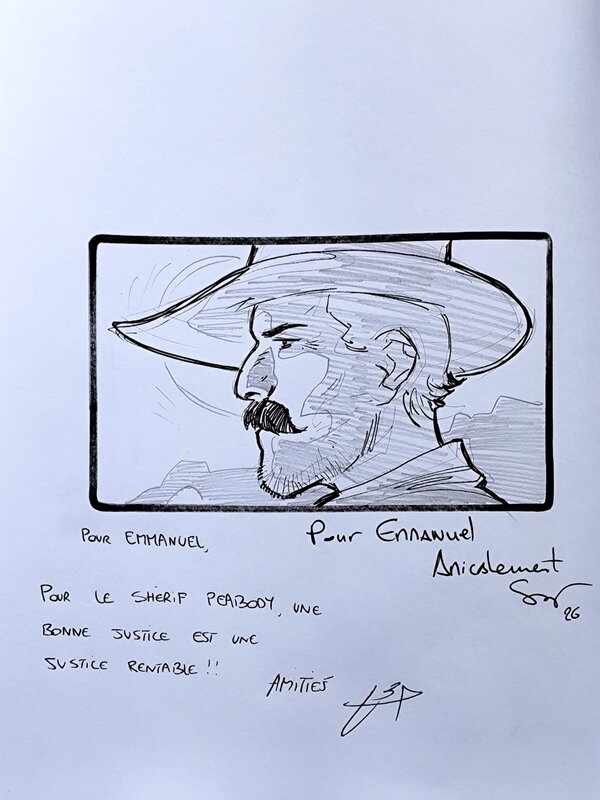 POUR EMMANUEL,
Pour EMMANUEL
Amicalement
26
POUR LE SHÉRIF PEABODY, UNE
BONNE JUSTICE EST UNE
JUSTICE RENTABLE !!
AMITIÉS